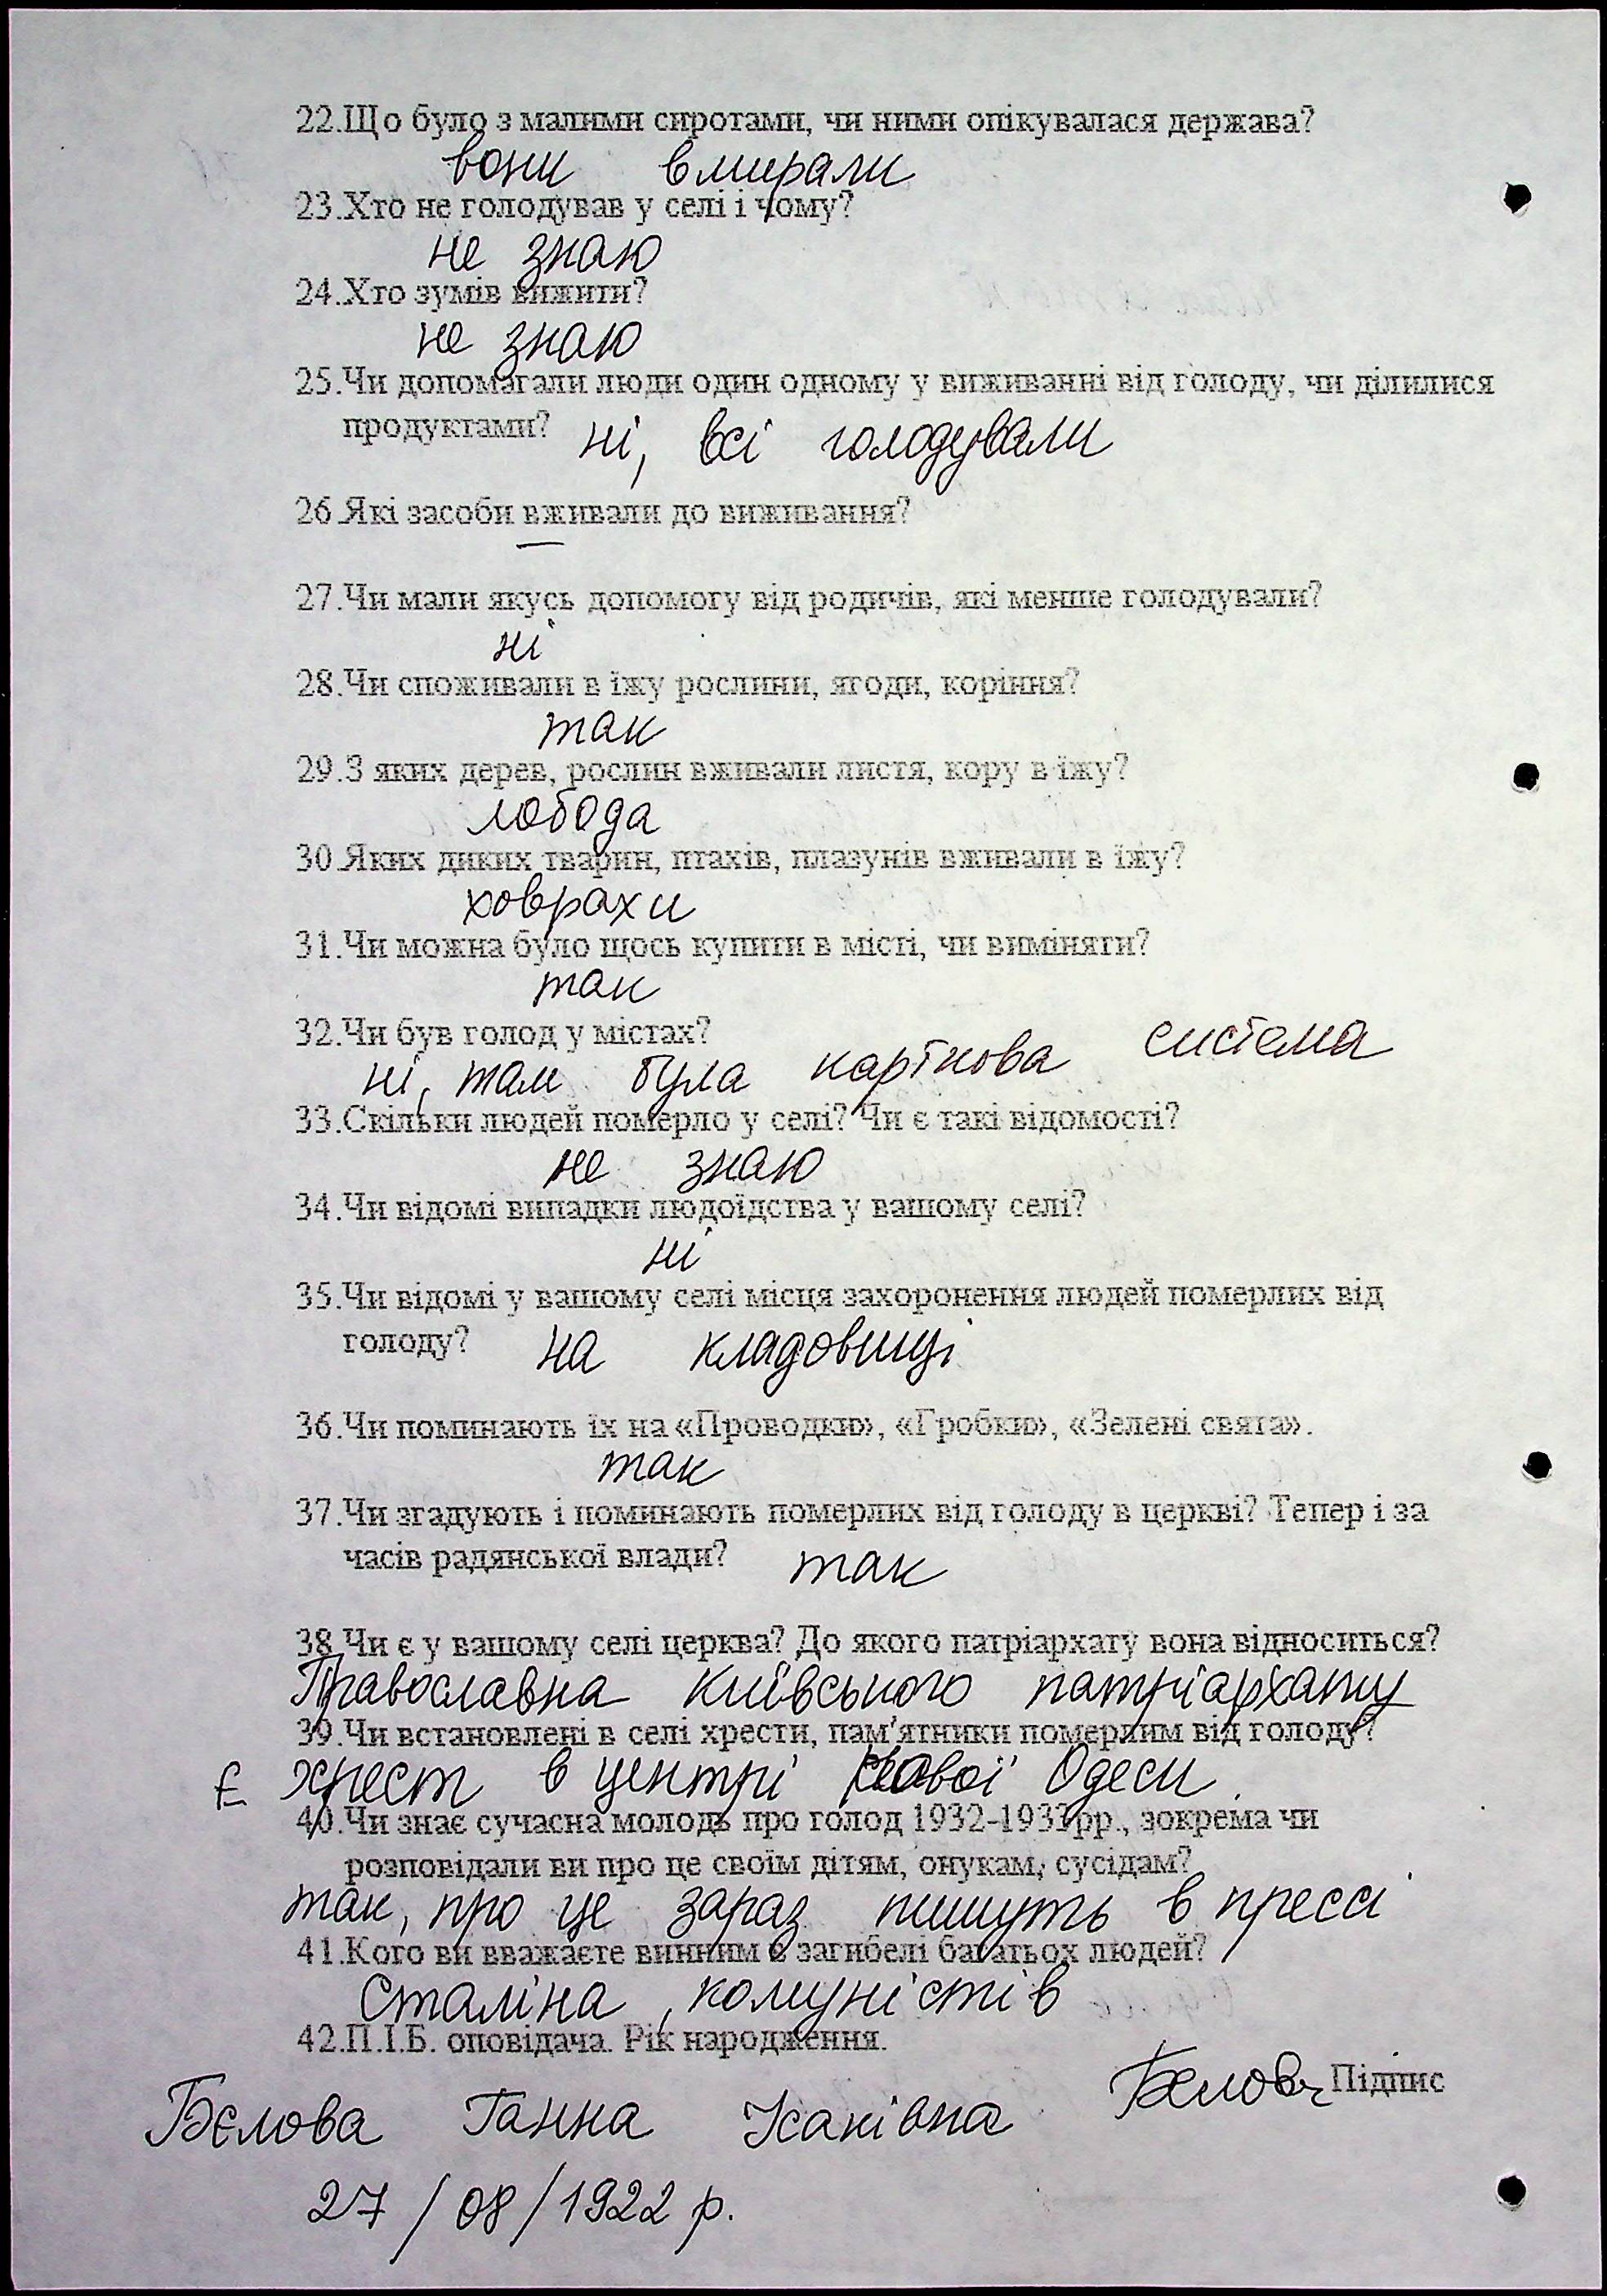 22.Що було з малими сиротами, чи ними опікувалася держава?
вони вмирали
23.Хто не голодував у селі і чому?
не знаю
24.Хто зумів вижити?
не знаю
25.Чи допомагали люди один одному у виживанні від голоду, чи ділилися
продуктами? ні, всі голодували
26.Які засоби вживали до виживання?
—
27.Чи мали якусь допомогу від родичів, які менше голодували?
ні
28.Чи споживали в їжу рослини, ягоди, коріння?
так
29.З яких дерев, рослин вживали листя, кору в їжу?
лобода
30.Яких диких тварин, птахів, плазунів вживали в їжу?
ховрахи
31.Чи можна було щось купити в місті, чи виміняти?
так
32.Чи був голод у містах?
ні, там була карткова система
33.Скільки людей померло у селі? Чи є такі відомості?
не знаю
34.Чи відомі випадки людоїдства у вашому селі?
ні
35.Чи відомі у вашому селі місця захоронення людей померлих від
голоду? на кладовищі
36.Чи поминають їх на «Проводки», «Гробки», «Зелені свята».
так
37.Чи згадують і поминають померлих від голоду в церкві? Тепер і за
часів радянської влади? так
38.Чи є у вашому селі церква? До якого патріархату вона відноситься?
Православна Київського патріархату
39.Чи встановлені в селі хрести, пам'ятники померлим від голоду?
Є хрест в центрі Нової Одеси
40.Чи знає сучасна молодь про голод 1932-1933рр., зокрема чи
розповідали ви про це своїм дітям, онукам, сусідам?
так, про це зараз пишуть в прессі
41.Кого ви вважаєте винним в загибелі багатьох людей?
Сталіна, комуністів
42.П.І.Б. оповідача. Рік народження.
Бєлова Підпис
Бєлова Ганна Ісаківна
27/08/1922 р.